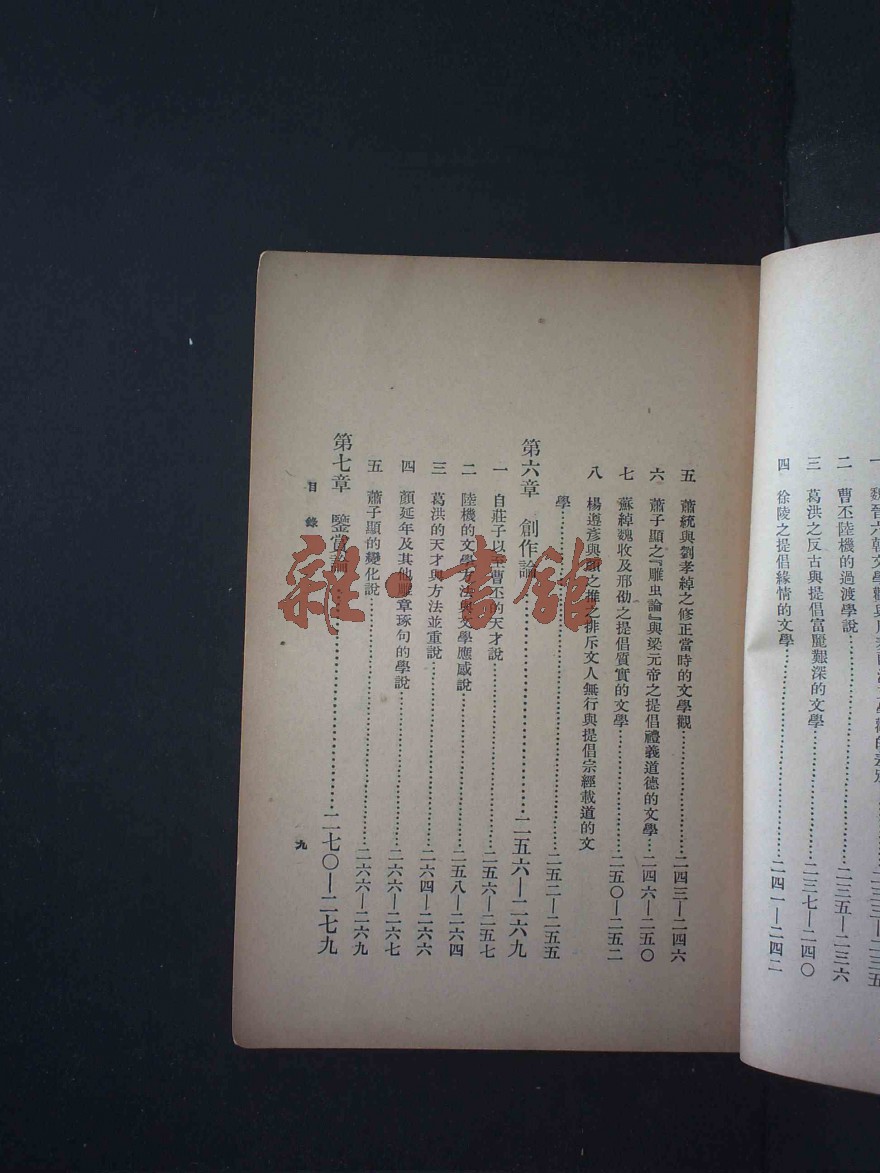 一
二 曹丕陸機的過渡學說……二三五—二三六
三 葛洪之反古與提倡富麗艱深的文學……二三七—二四〇
四 徐陵之提倡緣情的文學……二四一—二四二
五 蕭統與劉孝綽之修正當時的文學觀……二四三—二四六
六 蕭子顯之『雕虫論』與梁元帝之提倡禮義道德的文學……二四六—二五〇
七 蘇綽魏收及邢劭之提倡質實的文學……二五〇—二五二
八 楊遵彥與顏之推之排斥文人無行與提倡宗經載道的文
學……二五二—二五五
第六章 創作論……二五六—二六九
一 自莊子以至曹丕的天才說……二五六—二五七
二 陸機的文學方法與文學應感說……二五八—二六四
三 葛洪的天才與方法並重說……二六四—二六六
四 顏延年及其他雕章琢句的學說……二六六—二六七
五 蕭子顯的變化說……二六六—二六九
第七章 鑒賞論……二七〇—二七九
目錄
九
雜·書館